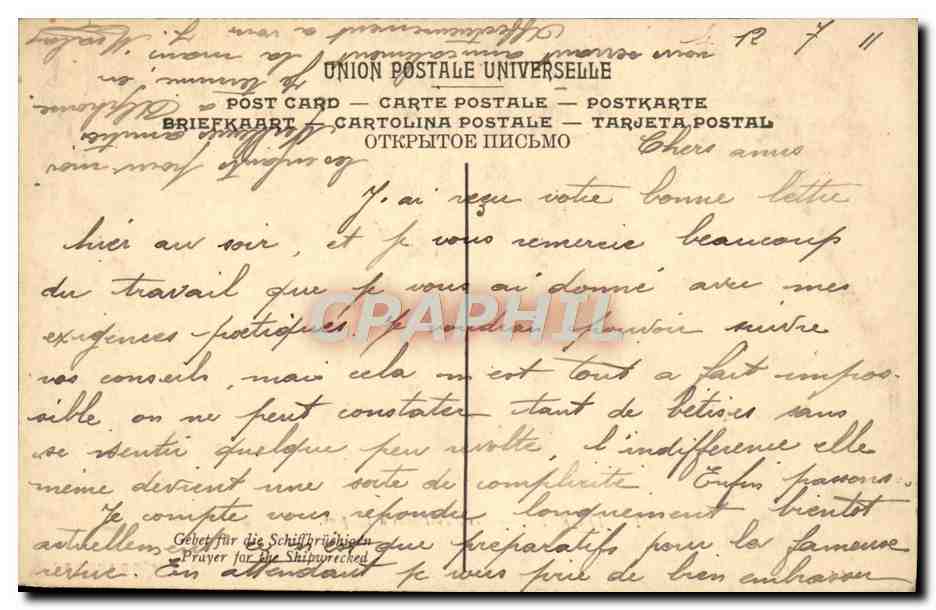 12 7 11
UNION POSTALE UNIVERSELLE
POST CARD — CARTE POSTALE — POSTKARTE
BRIEFKAART — CARTOLINA POSTALE — TARJETA POSTAL
ОТКРЫТОЕ ПИСЬМО
Chers amis
J'ai reçu votre bonne lettre
hier au soir, et je vous remercie beaucoup
du travail que je vous ai donné avec mes
exigences poétiques, je voudrai pouvoir suivre
vos conseils, mais cela m'est tout a fait impos-
sible on ne peut constater tant de bêtises sans
se sentir quelque peu révolté, l'indifference elle
même devient une sorte de complicité. Enfin passons.
Je compte vous répondre longuement bientot
actuellement que préparatifs pour la fameuse
revue. En attendant je vous prie de bien embrasser
les enfants pour moi
meilleures amitiés
a Alphonse
Je termine en
vous serrant amicalement la main
Affectueusement a vous J.
Gebet für die Schiffbrüchigen
Prayer for the Shipwrecked
CPAPHIL